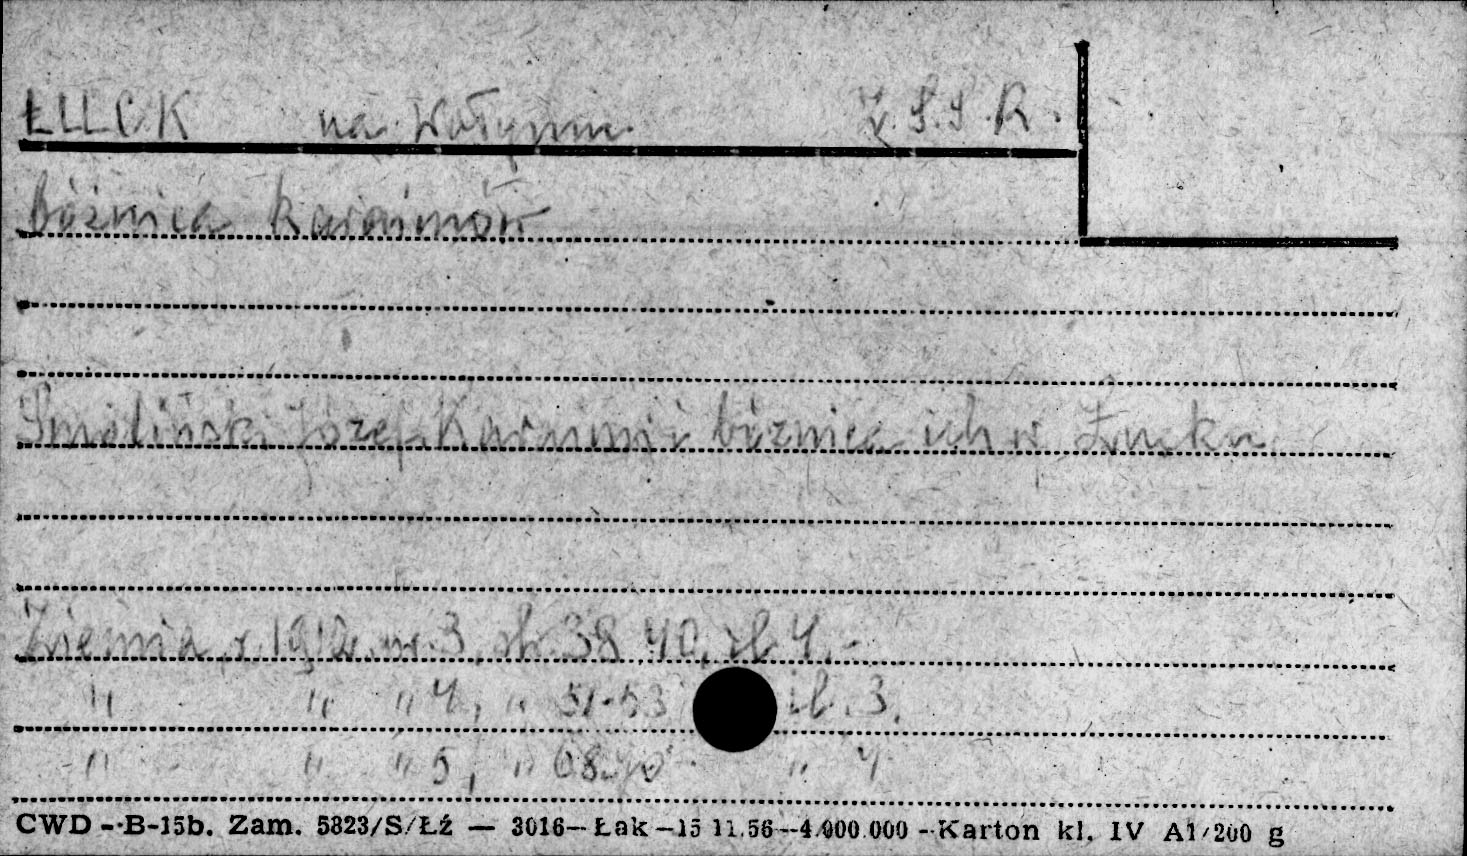 ŁUCK na Wołyniu Z.S.S.R.
Bóżnica Karaimów
Smoliński Józef. Karaimi i bóżnica ich w Łucku
Ziemia r. 1912. nr. 3, str. 38 40, il. 4.-
" " " 4, " 51-53 il. 3.
" " " 5, " 68-70 " 4
CWD -- B-15b. Zam. 5823/S/Łź — 3016 — Łak — 15 11.56 -- 4.000.000 -- Karton kl. IV A1/200 g